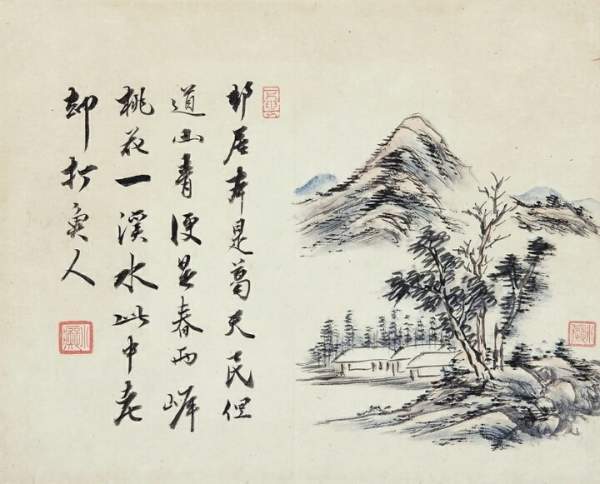 邨居本是葛天民但
道山青便是春两岸
桃花一溪水此中老
却打魚人